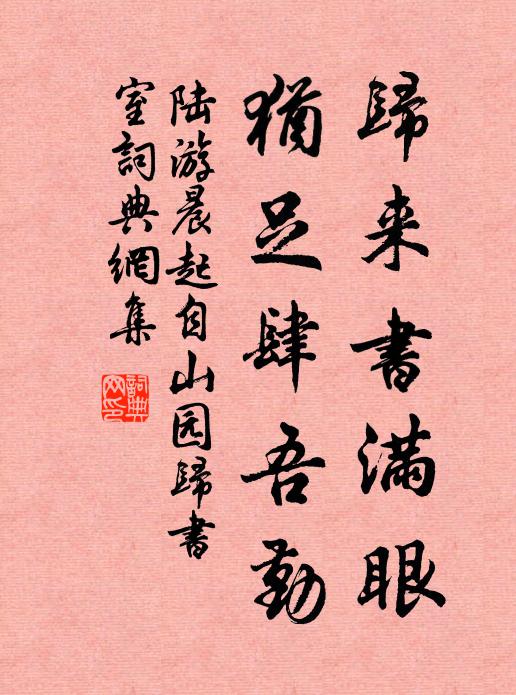 歸来書滿眼
猶足肆吾勤
陆游晨起自山园歸書
室詞典網集
詞典
网印